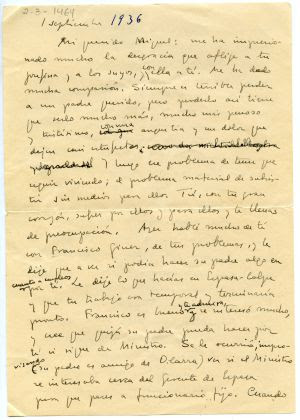 2-3-1464
1 septiembre 1936
Mi querido Miguel: me ha impresio-
nado mucho la desgracia que aflije a tu
y a los suyos, con ella a ti. Me ha dado
mucha compasión. Siempre es terrible perder
a un padre querido, pero perderlo así tiene
que serlo mucho más, mucho más penoso
con una angustia y un dolor que
dejan casi
Y luego ese problema de tener que
seguir viviendo; el problema material de subsis-
tir sin medios para ellos. Tú, con tu gran
corazón, sufres por ellos y para ellos y te llenas
de preocupación. Ayer hablé mucho de ti
con Francisco Giner, de tus problemas, y le
dije que a ver si podía hacer su padre algo en
cuanto a empleos
por ti. Le dije lo que hacías en Espasa-Calpe
y que tu trabajo era temporal y terminaría
pronto. Francisco es bueno, y te admira, se interesó mucho,
y cree que quizá su padre pueda hacer por
ti si sigue de Ministro. Se le ocurrió, impro-
visando
(su padre es amigo de Olarra) ver si el Ministro
se interesaba cerca del Gerente de Espasa
para que pases a funcionario fijo. Cuando